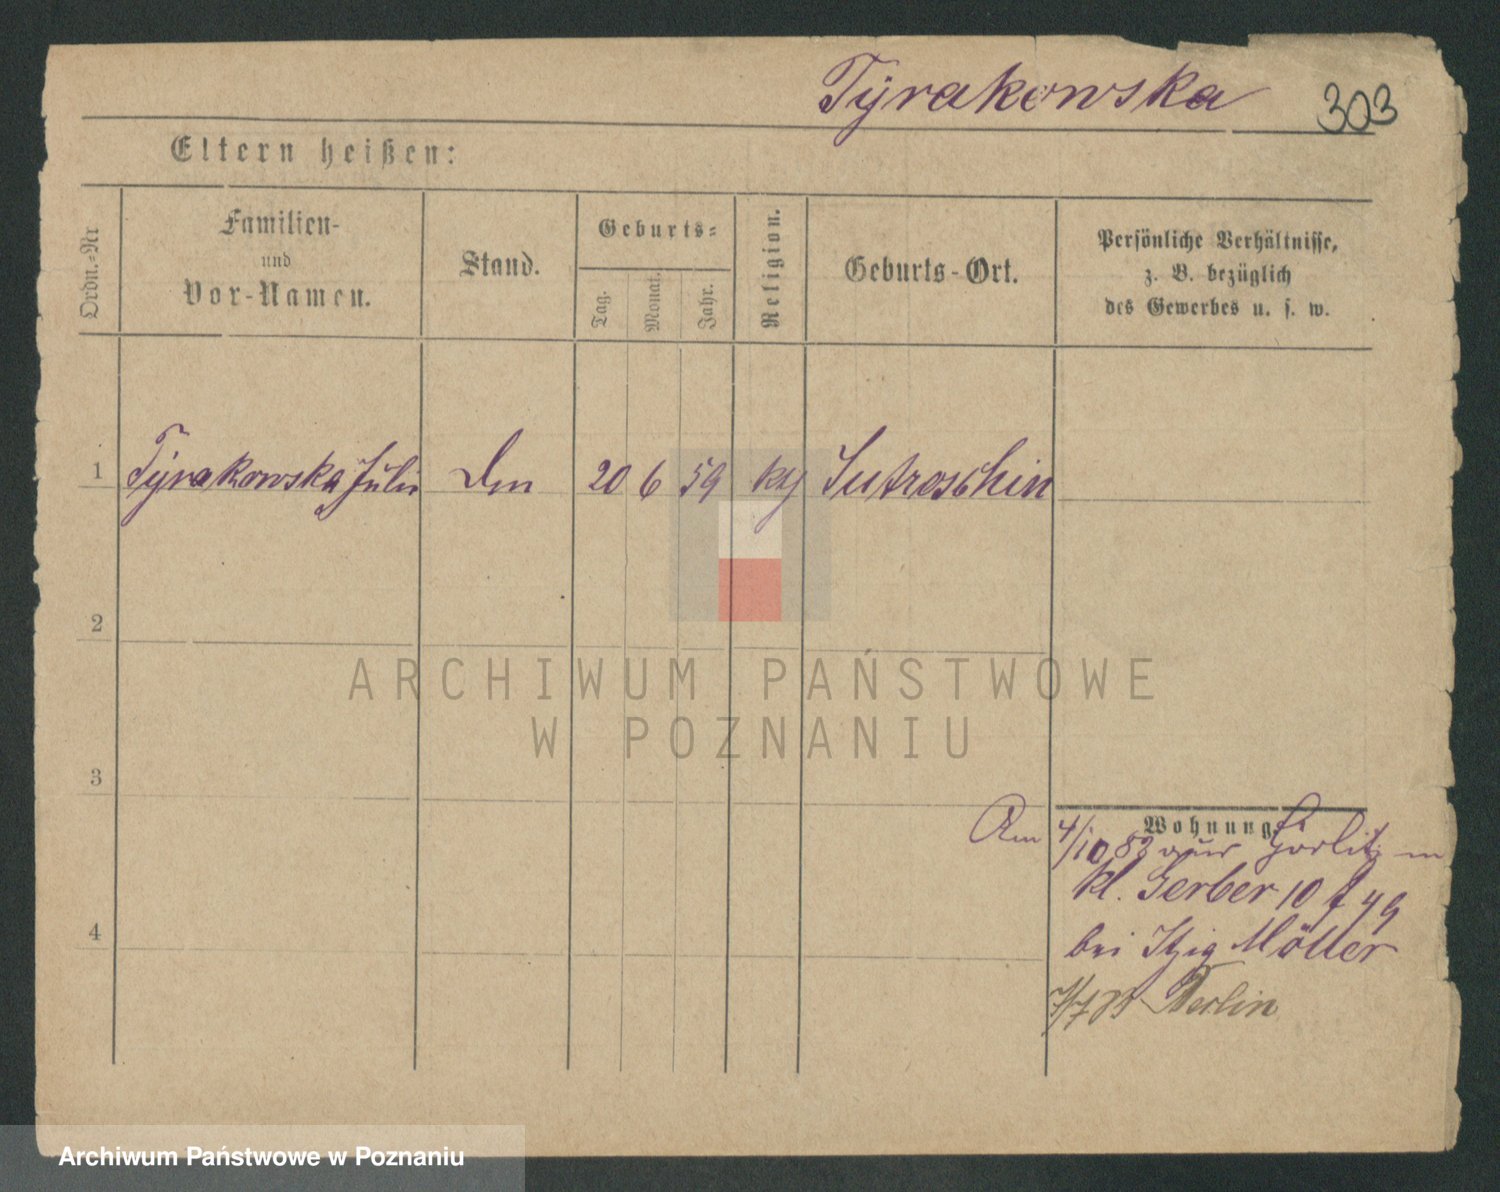 Tÿrakowska 303
Eltern heißen:
Ordn.-Nr
Familien-
und
Vor-Namen.
Stand.
Geburts-
Tag.
Monat.
Jahr.
Religion.
Geburts-Ort.
Persönliche Verhältnisse,
z. B. bezüglich
des Gewerbes u. s. w.
1 Tÿrakowska Julie 20 6 59 Sutroschin
2
3
4
Wohnung.
Am 4/10 83 aus Görlitz
kl. Gerber 10 49
bei Itzig Möller
Berlin
ARCHIWUM PAŃSTWOWE
W POZNANIU
Archiwum Państwowe w Poznaniu